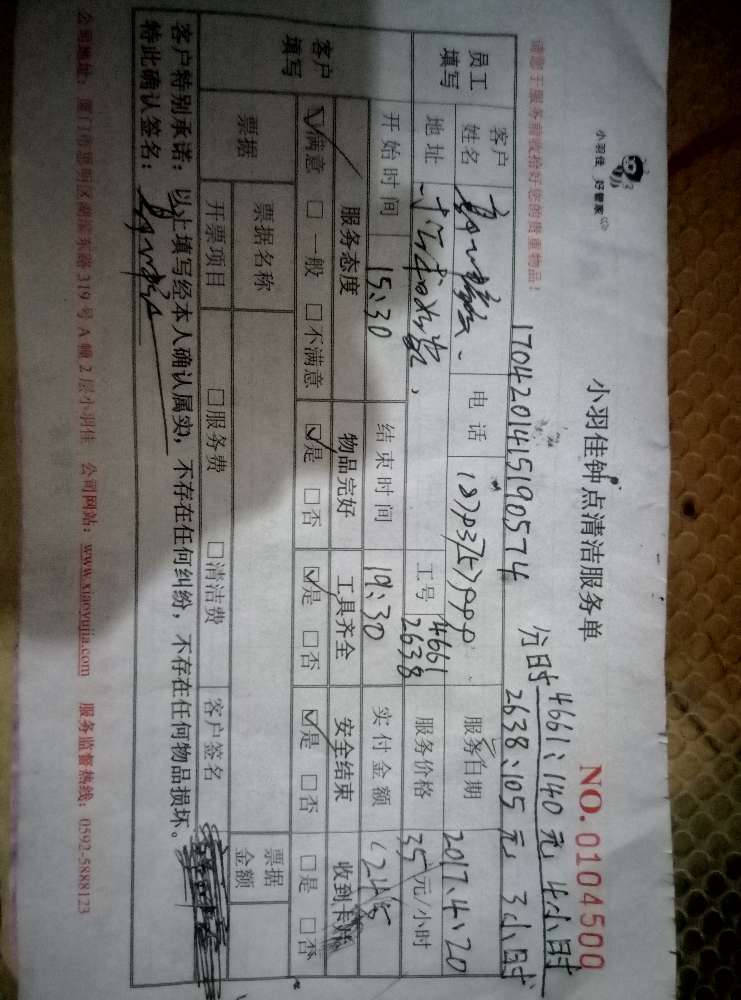 小羽佳 好管家
小羽佳钟点清洁服务单
NO.0104500
请您于服务前收拾好您的贵重物品！
1704201415190574
分时 4661：140元 4小时
2638：105元 3小时
员工填写
客户姓名
电话
服务日期 2017.4.20
地址
工号 4661
2638
服务价格 35元/小时
开始时间 15:30
结束时间 19:30
实付金额 245
客户填写
服务态度 物品完好 工具齐全 安全结束 收到卡
☑满意 □一般 □不满意 ☑是 □否 ☑是 □否 ☑是 □否 □是 □否
票据
票据名称
票据金额
开票项目 □服务费 □清洁费 客户签名
客户特别承诺：以上填写经本人确认属实，不存在任何纠纷，不存在任何物品损坏。
特此确认签名：
公司地址：厦门市思明区湖滨东路319号A幢2层小羽佳 公司网站：www.xiaoyujia.com 服务监督热线：0592-5888123